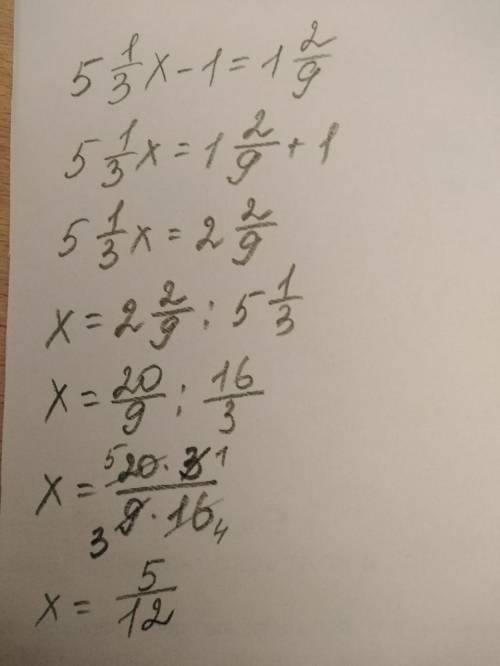 5 1/3 x - 1 = 1 2/9
5 1/3 x = 1 2/9 + 1
5 1/3 x = 2 2/9
x = 2 2/9 : 5 1/3
x = 20/9 : 16/3
x = 5 20 · 3 1 / 3 9 · 16 4
x = 5/12